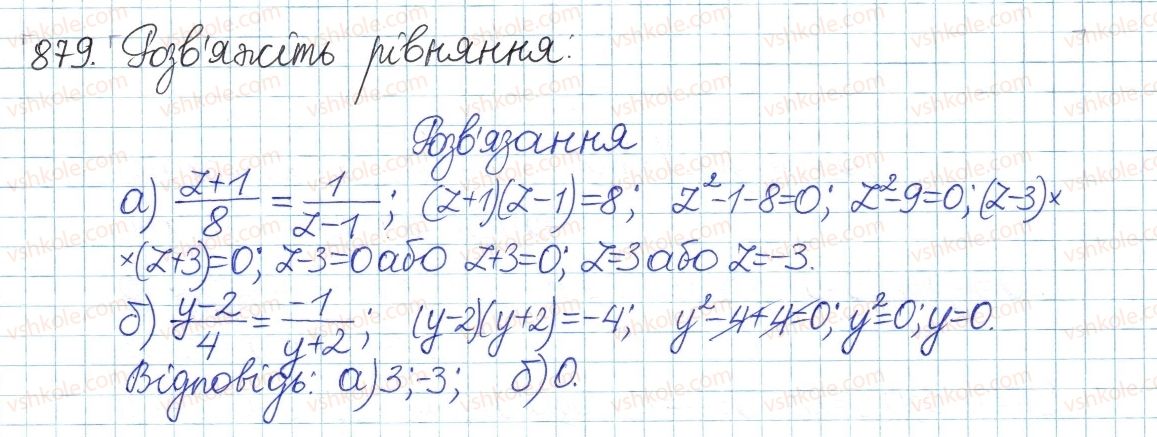 879. Розв'яжіть рівняння:
Розв'язання
а) (z+1)/8 = 1/(z−1); (z+1)(z−1)=8; z²−1−8=0; z²−9=0; (z−3)×
×(z+3)=0; z−3=0 або z+3=0; z=3 або z=−3.
б) (y−2)/4 = −1/(y+2); (y−2)(y+2)=−4; y²−4+4=0; y²=0; y=0.
Відповідь: а) 3; −3; б) 0.